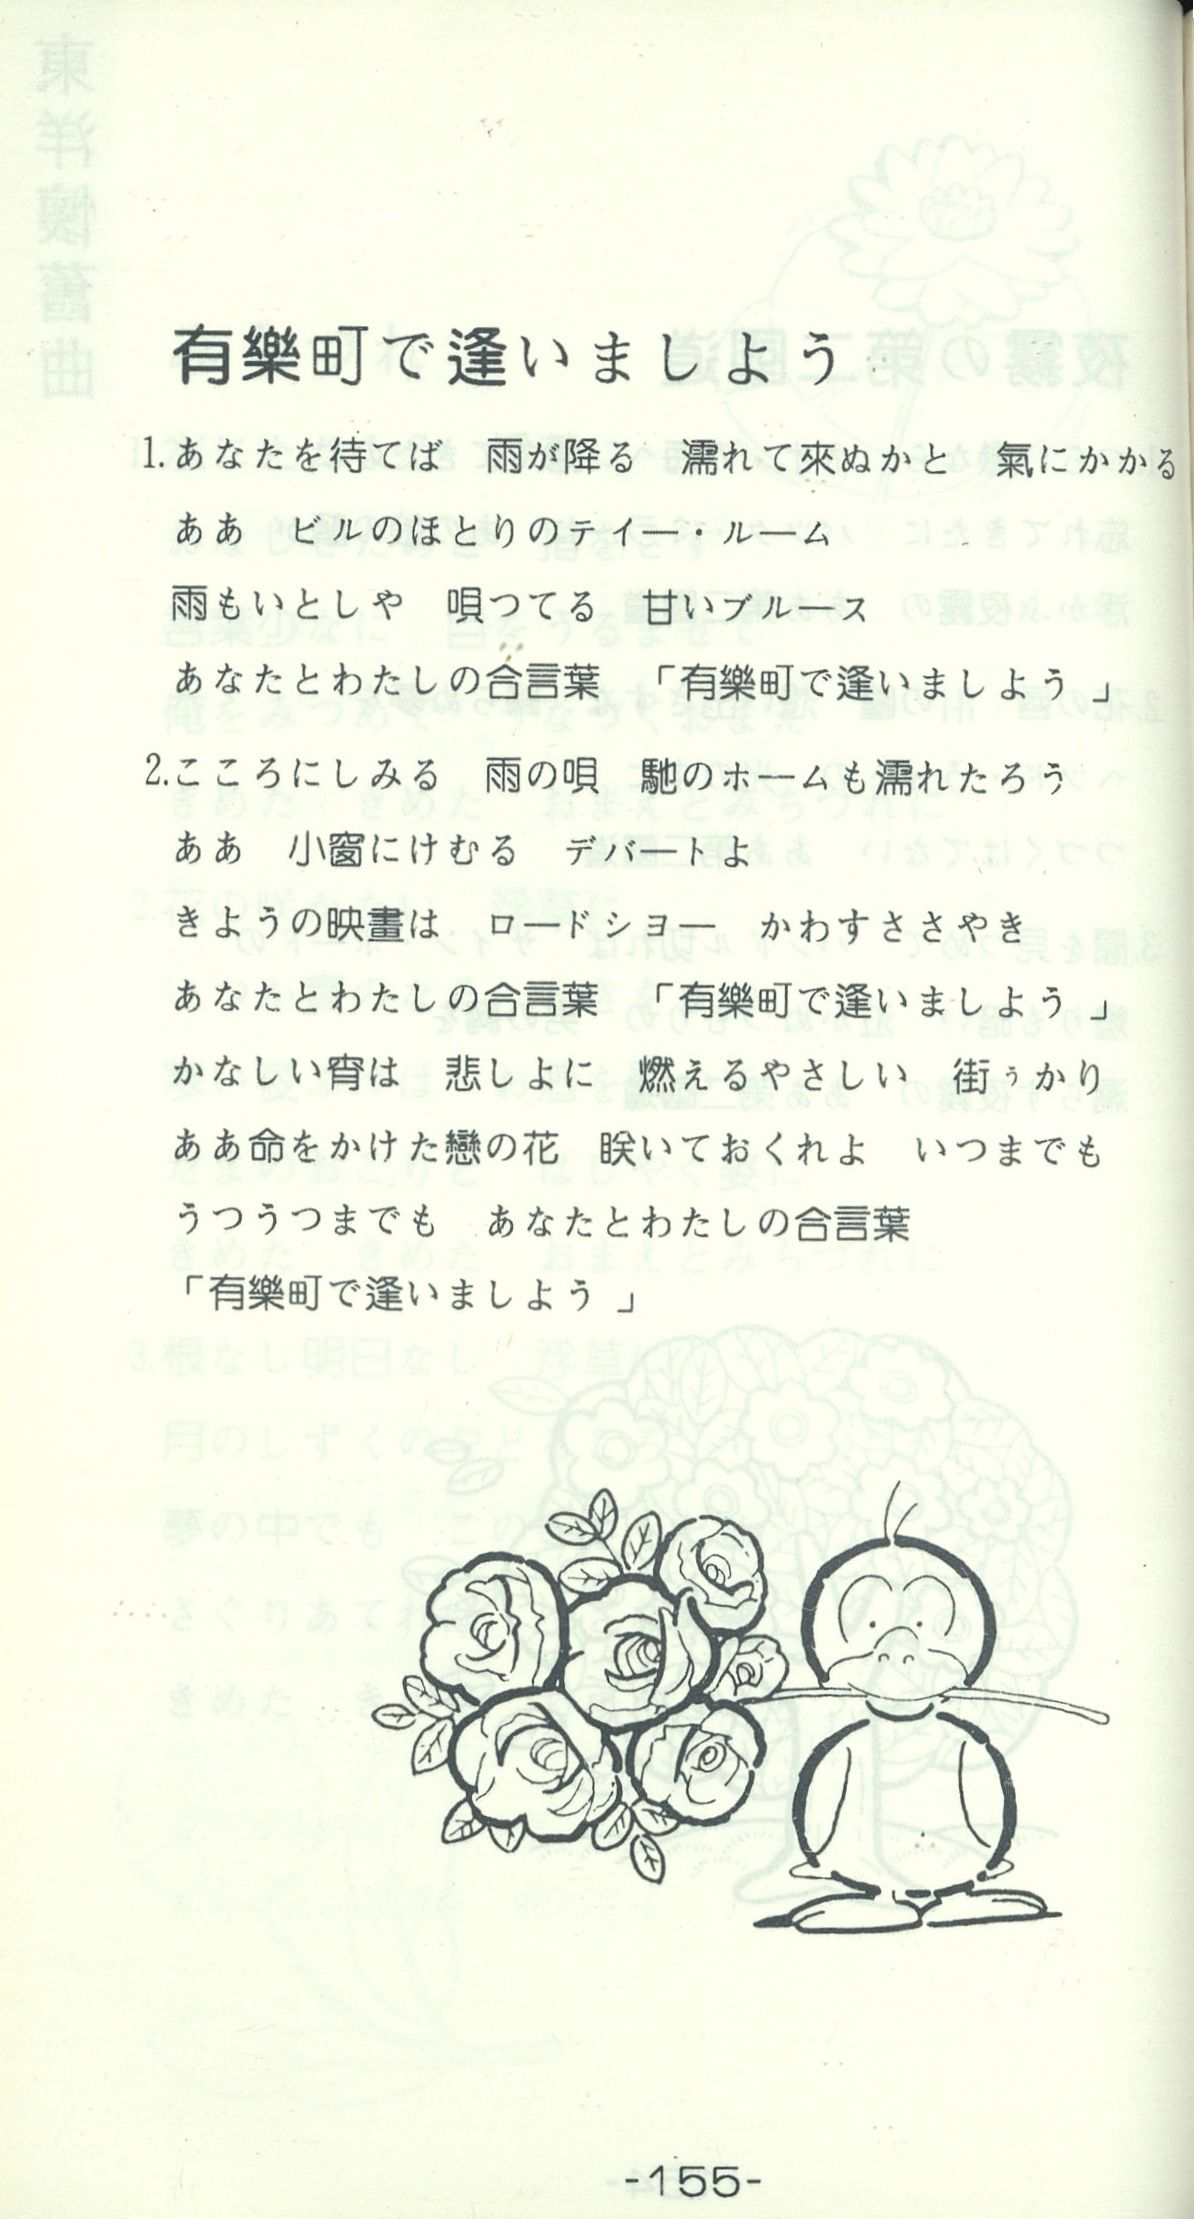 有樂町で逢いましよう
1.あなたを待てば　雨が降る　濡れて來ぬかと　氣にかかる
ああ　ビルのほとりのテイー・ルーム
雨もいとしや　唄つてる　甘いブルース
あなたとわたしの合言葉　「有樂町で逢いましよう」
2.こころにしみる　雨の唄　馳のホームも濡れたろう
ああ　小窗にけむる　デバートよ
きようの映畫は　ロードシヨー　かわすささやき
あなたとわたしの合言葉　「有樂町で逢いましよう」
かなしい宵は　悲しよに　燃えるやさしい　街ぅかり
ああ命をかけた戀の花　いておくれよ　いつまでも
うつうつまでも　あなたとわたしの合言葉
「有樂町で逢いましよう」
-155-